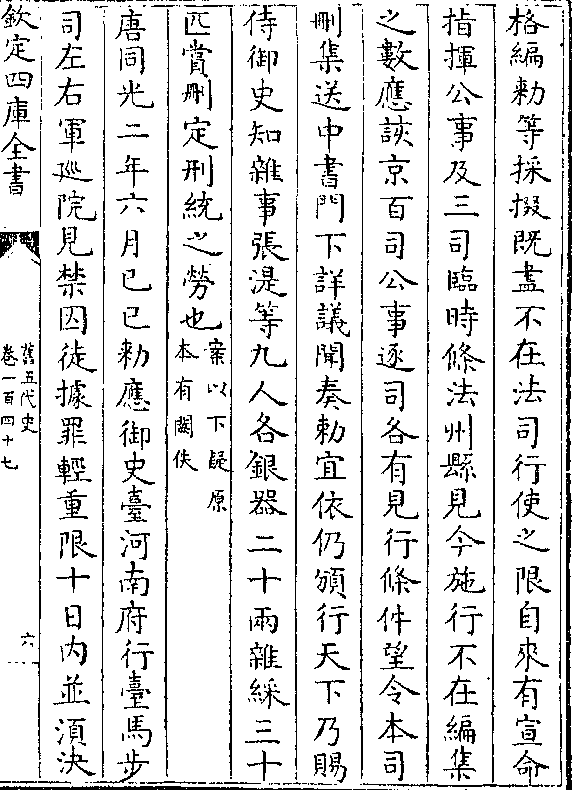 格編勅等採掇既盡不在法司行使之限自來有宣命
指揮公事及三司臨時條法州縣見今施行不在編集
之數應該京百司公事逐司各有見行條件望令本司
刪集送中書門下詳議聞奏勅宜依仍頒行天下乃賜
侍御史知雜事張湜等九人各銀器二十兩雜綵三十
匹賞刪定刑統之勞也案以下疑原本有闕佚
唐同光二年六月已巳勅應御史臺河南府行臺馬步
司左右軍巡院見禁囚徒據罪輕重限十日内並須決
欽定四庫全書
舊五代史
卷一百四十七
六